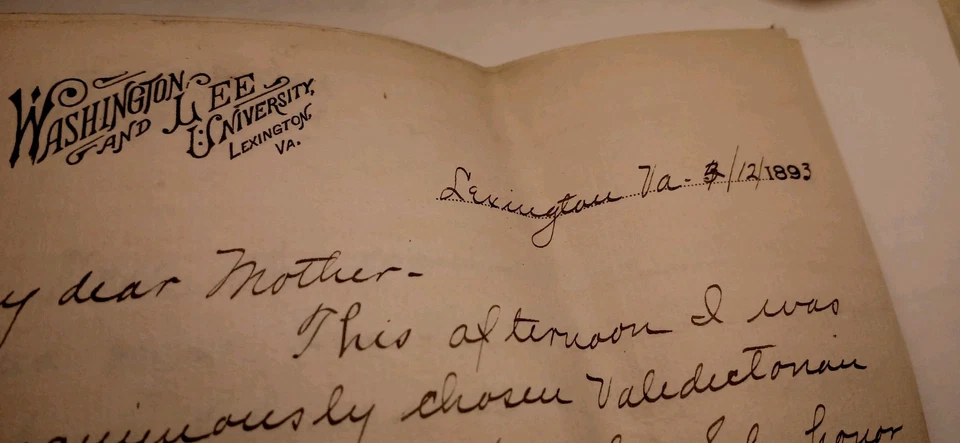 WASHINGTON
AND LEE
UNIVERSITY,
LEXINGTON,
VA.
Lexington Va - /12/1893
y dear Mother-
This afternoon I was
animously chosen Valedictorian
honor